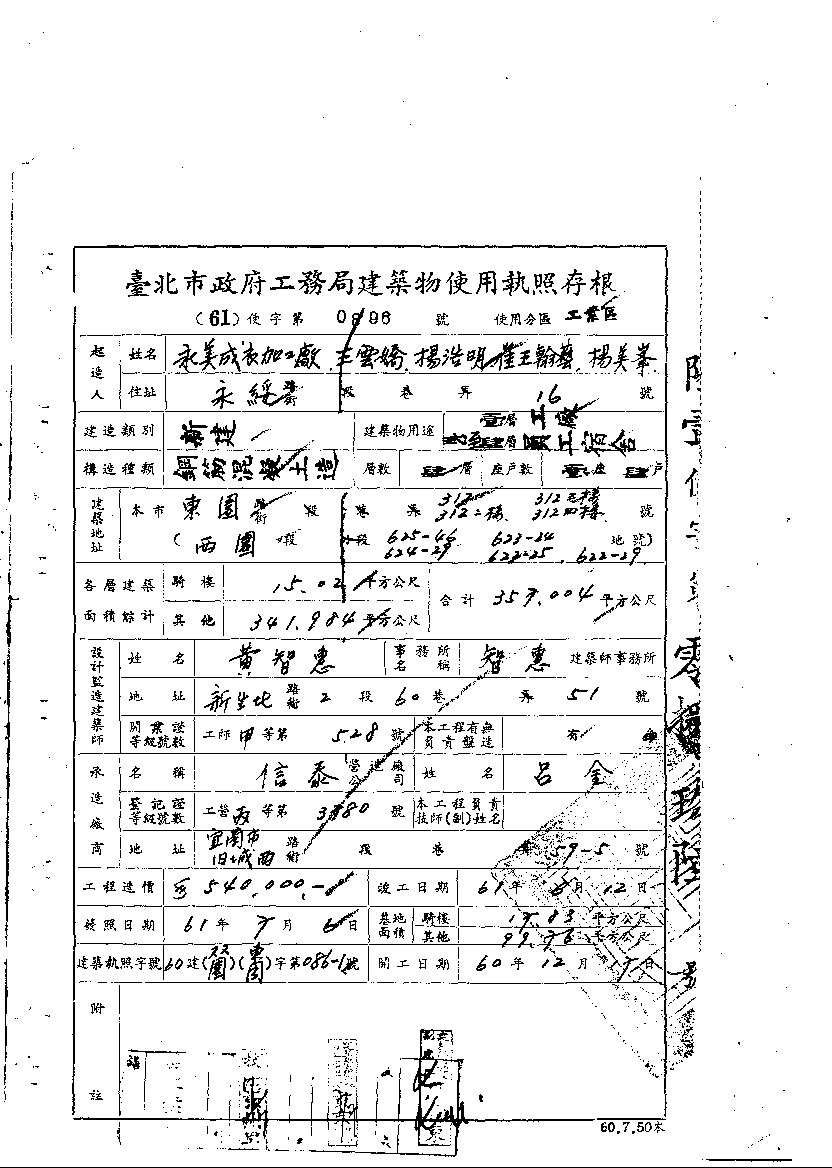 臺北市政府工務局建築物使用執照存根
(61)使字第 0896 號 使用分區 工業區
起造人 姓名 永美成衣加工廠 王雲嬌 楊浩明 崔王翰藝 楊美峯
住址 永綏街 段 巷 弄 16 號
建造類別 新建 建築物用途 壹層工廠
層員工宿舍
構造種類 鋼筋混凝土造 層數 肆層 座戶數 壹座 肆戶
建築地址 本市 東園街 段 巷 弄 312 312二樓 312三樓 312四樓 號
(西園段 小段 625-46 624-29 623-24 623-25 622-29 地號)
各層建築面積綜計 騎樓 15.02平方公尺 合計 357.004平方公尺
其他 341.984平方公尺
設計監造建築師 姓名 黃智惠 事務所名稱 智惠 建築師事務所
地址 新生北路街 2 段 60巷 弄 51 號
開業證等級號數 工師甲等第 528 號 本工程有無負責監造 有
承造廠商 名稱 信泰營造廠公司 姓名 呂金
登記證等級號數 工營丙等第 3880 號 本工程負責技師(副)姓名
地址 宜蘭市旧城西路街 段 巷 弄 59-5 號
工程造價 540,000,- 竣工日期 61年 6月 12日
發照日期 61年 7月 6日 基地面積 騎樓 17.83 平方公尺
其他 99.76 平方公尺
建築執照字號 60建(双園)(東園)字第086-1號 開工日期 60年 12月 17日
附註
60.7.50本